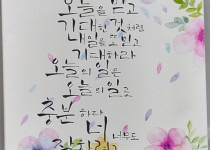 오늘을 믿고
기대한 것처럼
내일을 또 믿고
기대하라
오늘의 일은
오늘의 일로
충분하다
너
너무도